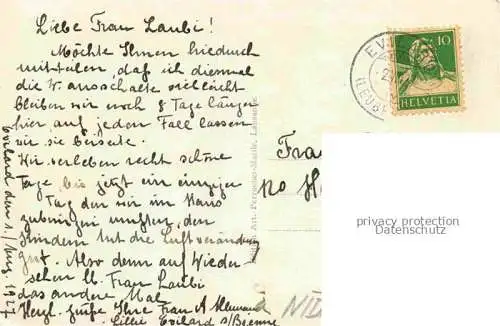 Liebe Frau Laubi!
Möchte Ihnen hiedurch
mitteilen, daß ich diesmal
die W. ausschalte vielleicht
bleiben wir noch 8 Tage länger
hier auf jeden Fall lassen
wir sie beiseite.
Wir verleben recht schöne
Tage, bis jetzt ein einziger
Tag den wir im Haus
zubringen mußten, den
Kindern tut die Luftveränderung
gut. Also denn auf Wieder-
sehen lb. Frau Laubi
das andere Mal
Herzl. Grüße Ihre Frau A. Allemand
Lilli Evilard s/Bienne
Evilard den 1. Aug. 1927
Lausanne
EV
10
HELVETIA
Frau
No
privacy protection
Datenschutz